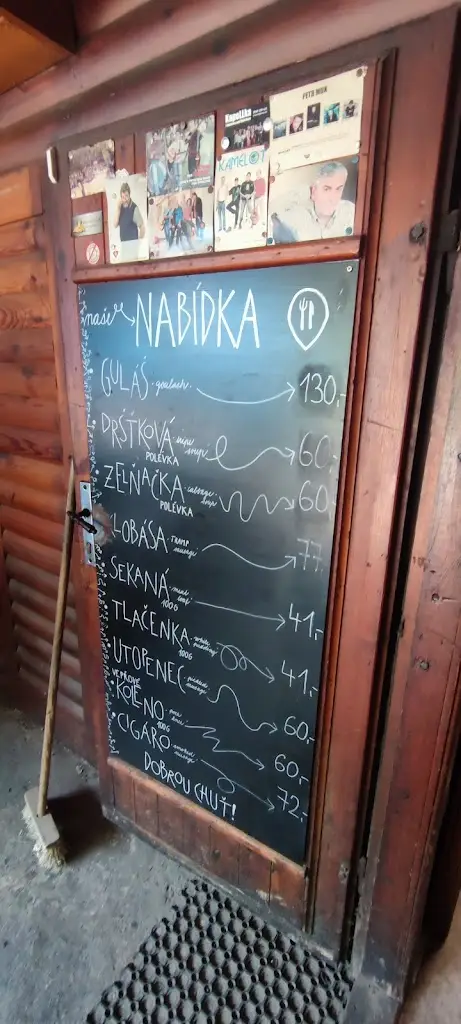 Kapelka
PETR MUK
KAMELOT
naše NABÍDKA
GULÁŠ goulash 130,-
DRŠŤKOVÁ tripe soup 60,-
POLÉVKA
ZELŇAČKA cabbage soup 60,-
POLÉVKA
KLOBÁSA TRAMP sausage 77,-
SEKANÁ meat loaf 41,-
100G
TLAČENKA white pudding 41,-
100G
UTOPENEC pickled sausage 60,-
VEPŘOVÉ
KOLENO pork knee 60,-
100G
CIGÁRO smoked sausage 72,-
DOBROU CHUŤ!